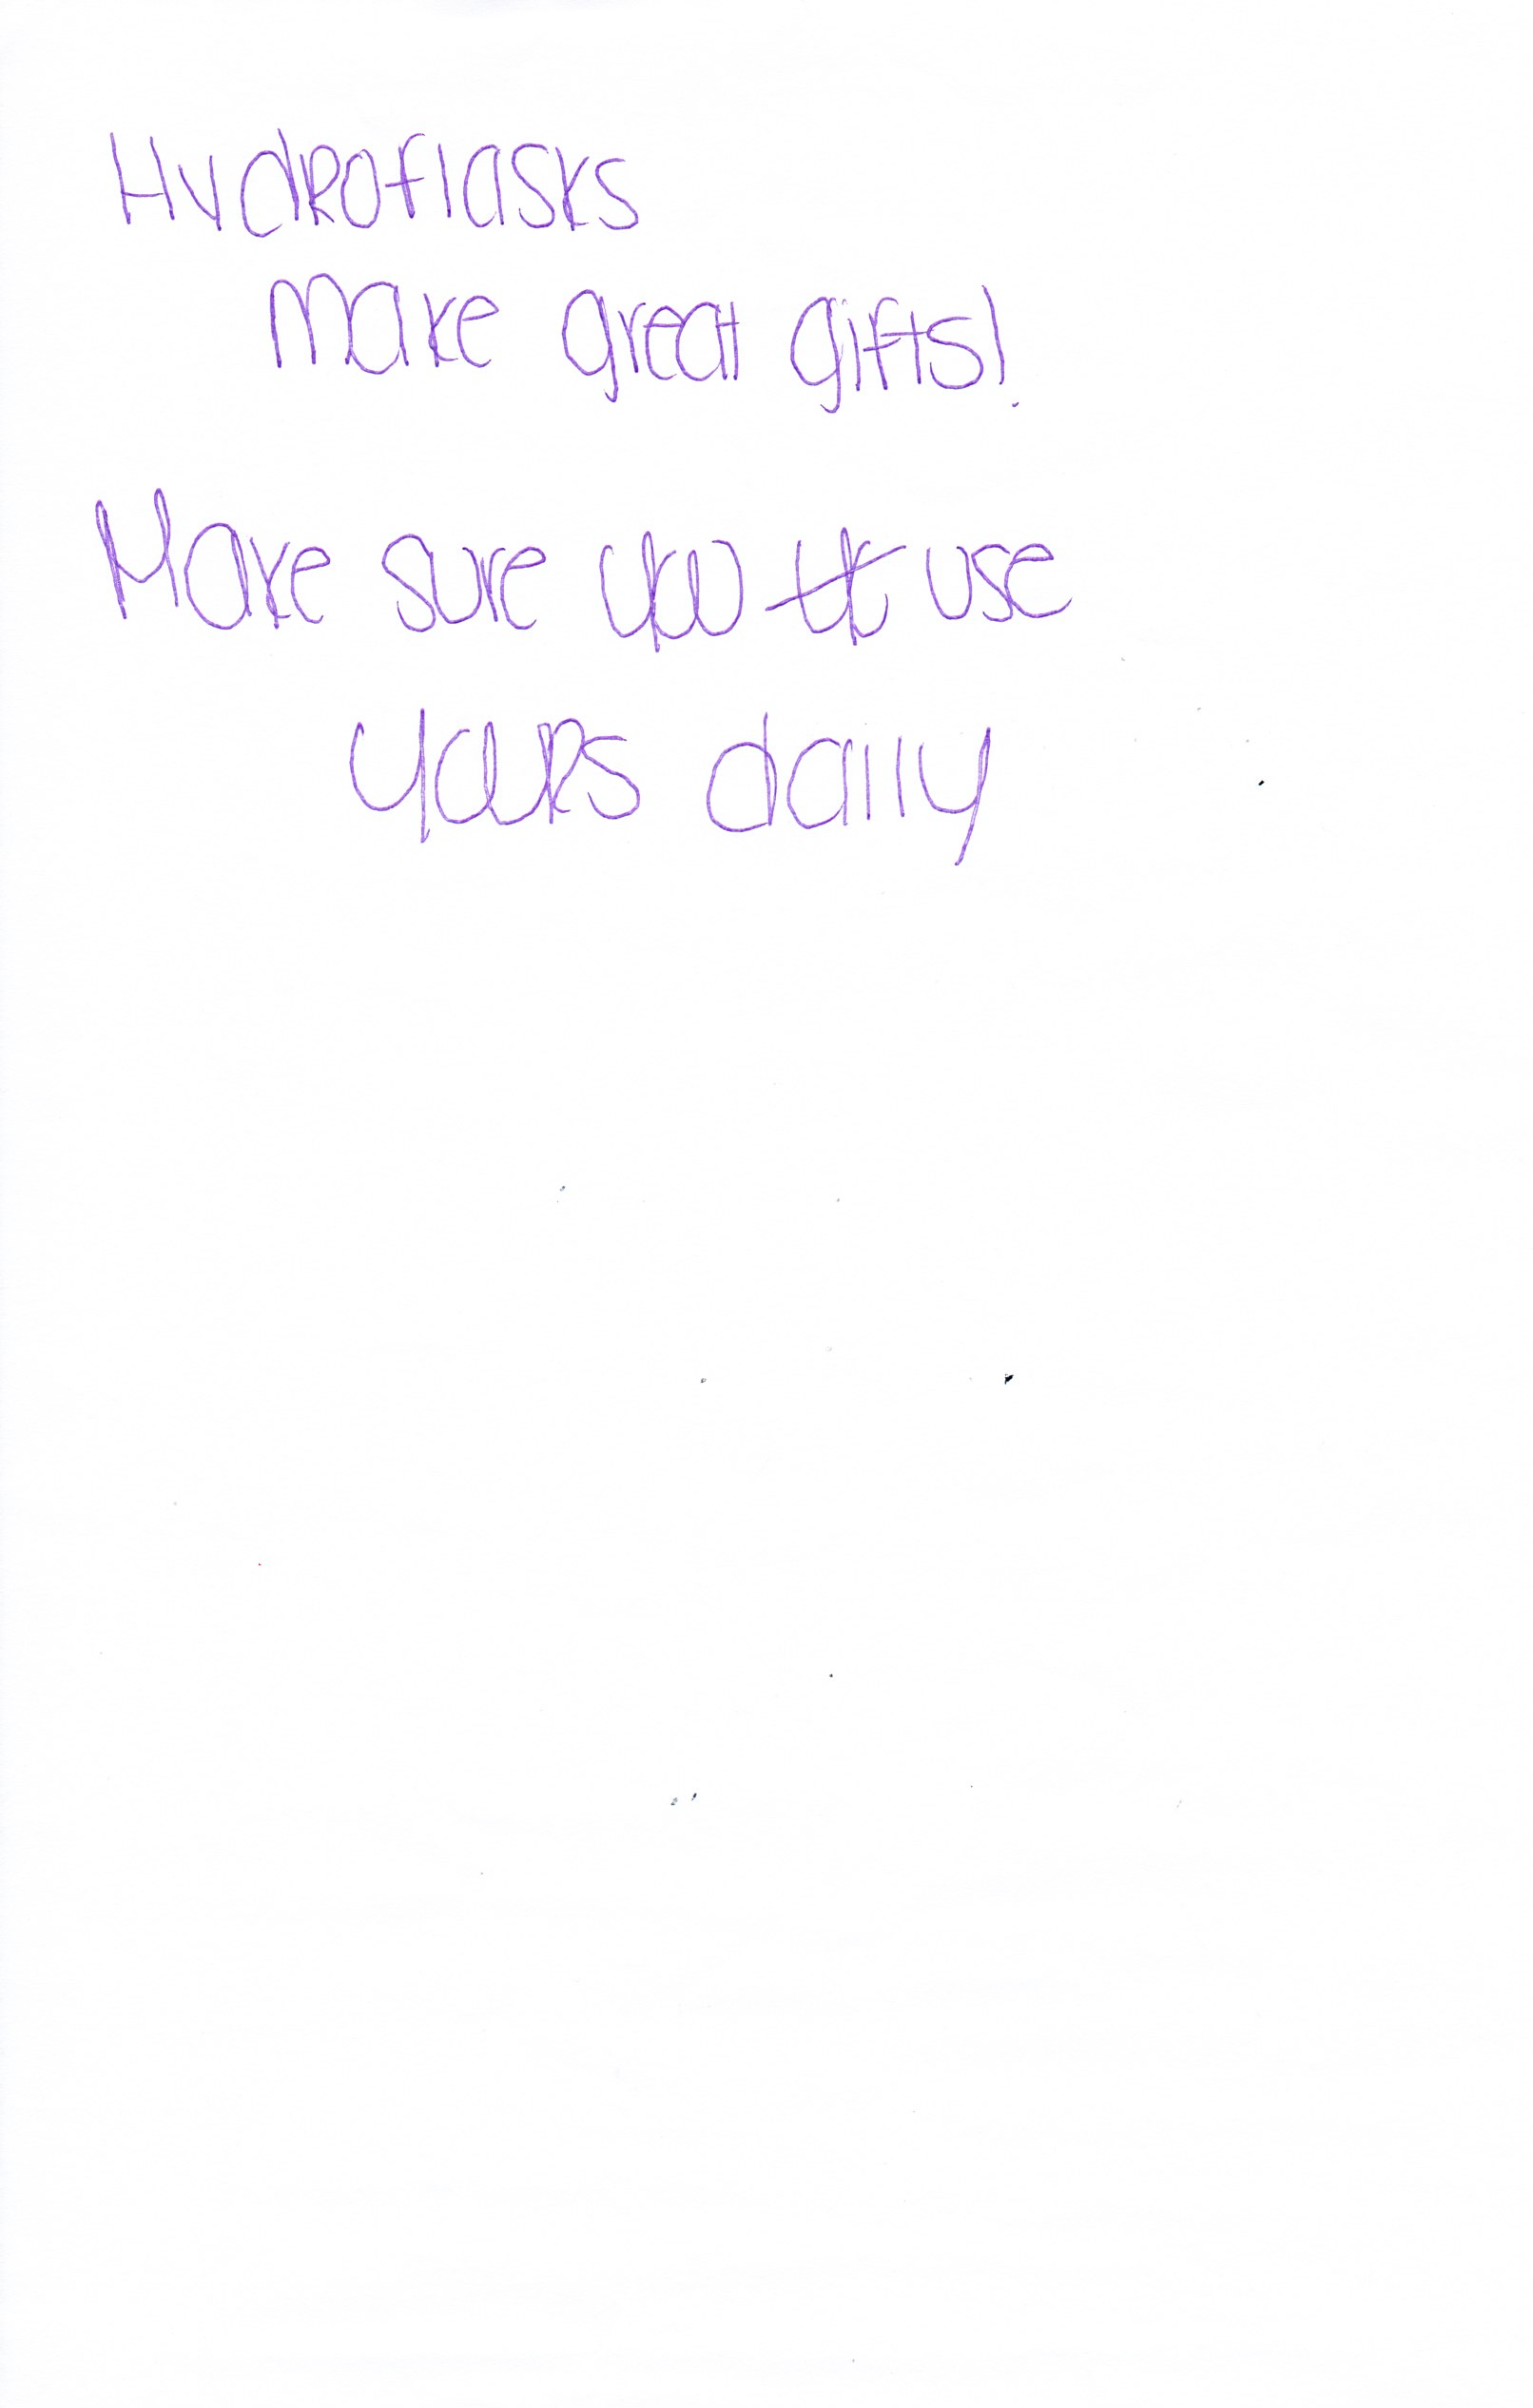 Hydroflasks
make great gifts!
Make sure you use
yours daily